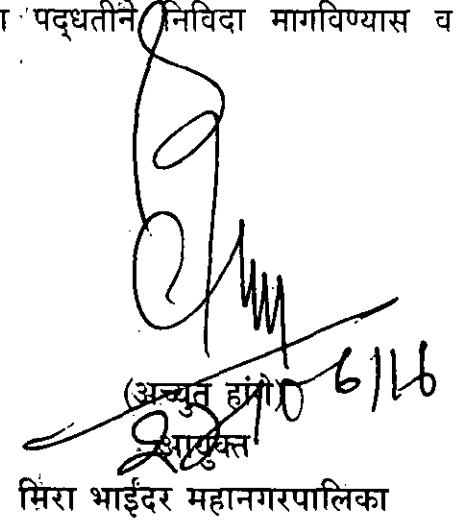 पद्धतीने निविदा मागविण्यास व
(अच्युत हांगे)
आयुक्त
मिरा भाईंदर महानगरपालिका